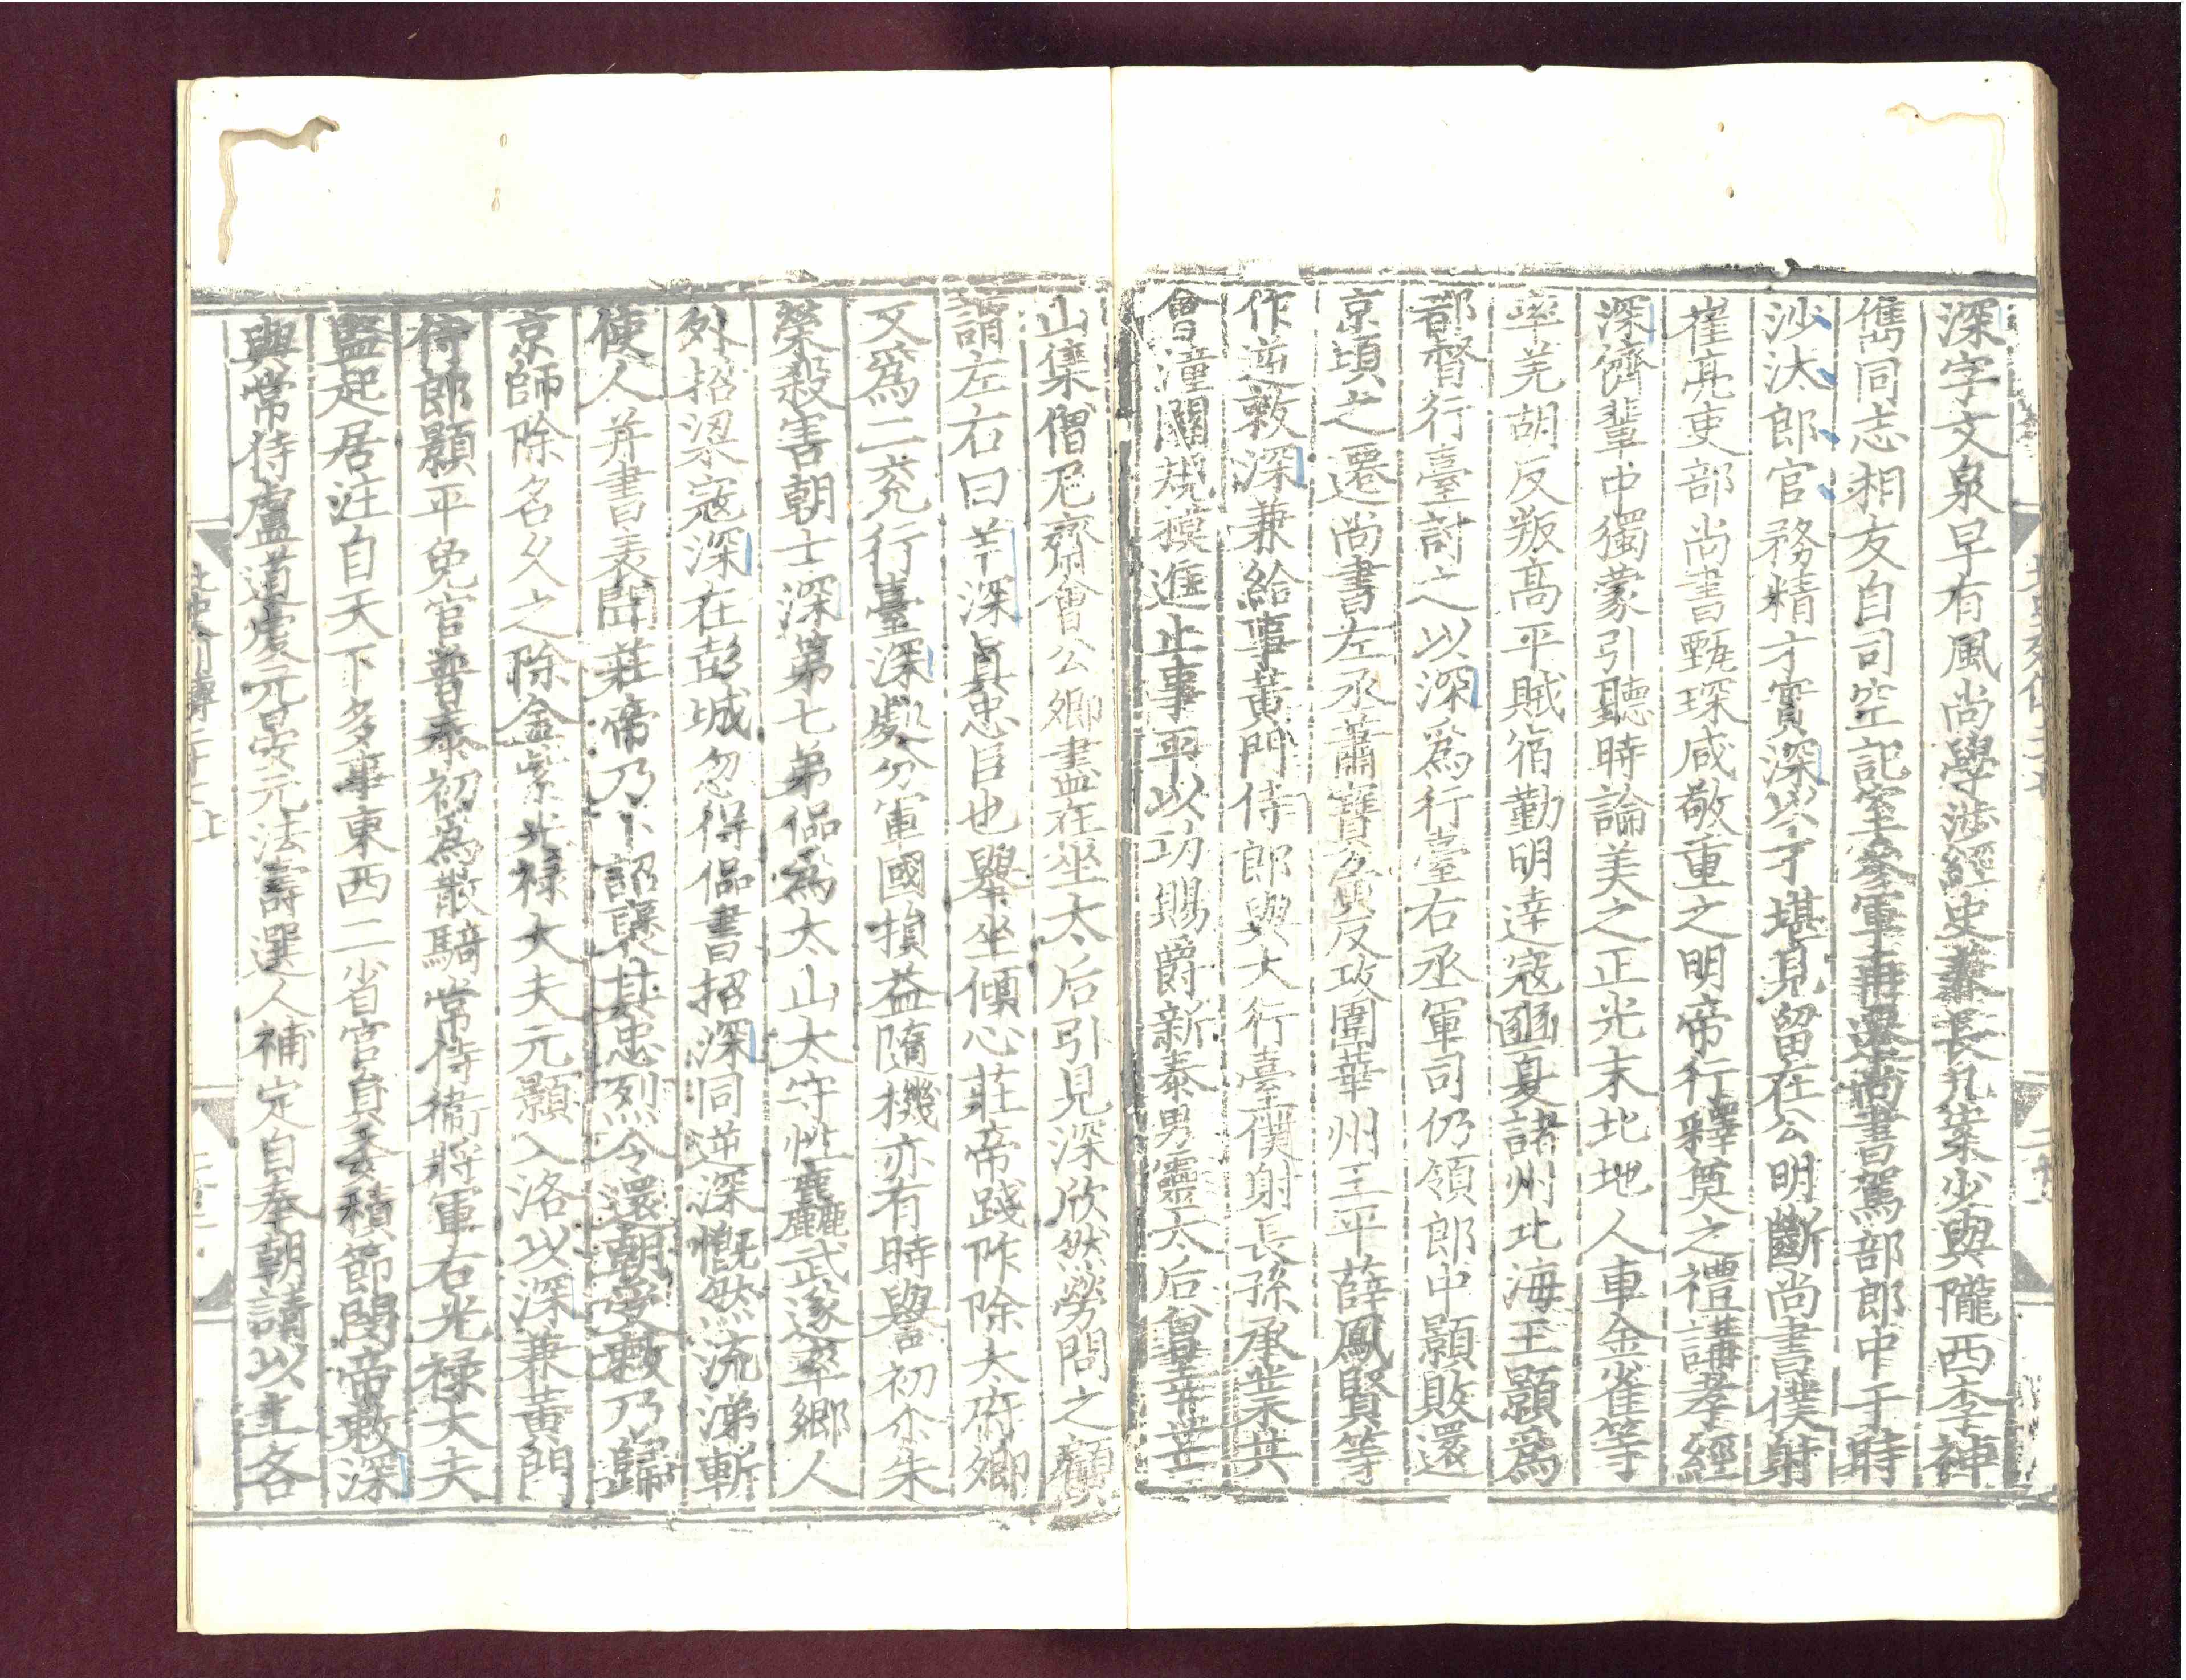 深字文泉早有風尚學涉經史兼長几案少與隴西李神
儁同志相友自司空記室參軍再遷尚書駕部郎中于時
沙汰郎官務精才實深以才堪見留在公明斷尚書僕射
崔亮吏部尚書甄琛咸敬重之明帝行釋奠之禮講孝經
深儕輩中獨蒙引聽時論美之正光末北地人車金雀等
率羌胡反叛高平賊宿勤明達寇豳夏諸州北海王顥爲
都督行臺討之以深爲行臺右丞軍司仍領郎中顥敗還
京頃之遷尚書左丞蕭寶夤反攻圍華州王平薛鳳賢等
作逆敕深兼給事黃門侍郎與大行臺僕射長孫承業共
會潼關規模進止事平以功賜爵新泰男靈太后曾幸芒
山集僧尼齋會公卿盡在坐太后引見深欣然勞問之顧
謂左右曰羊深真忠臣也舉坐傾心莊帝踐阼除太府卿
又爲二兗行臺深處分軍國損益隨機亦有時譽初尒朱
榮殺害朝士深第七弟侃爲太山太守性麤武遂率鄉人
外招梁寇深在彭城忽得侃書招深同逆深慨然流涕斬
使人并書表聞莊帝乃下詔褒其忠烈令還朝受敕乃歸
京師除名久之除金紫光祿大夫元顥入洛以深兼黃門
侍郎顥平免官普泰初爲散騎常侍衞將軍右光祿大夫
監起居注自天下多事東西二省官員委積節閔帝敕深
與常侍盧道虔元晏元法壽選人補定自奉朝請以上各